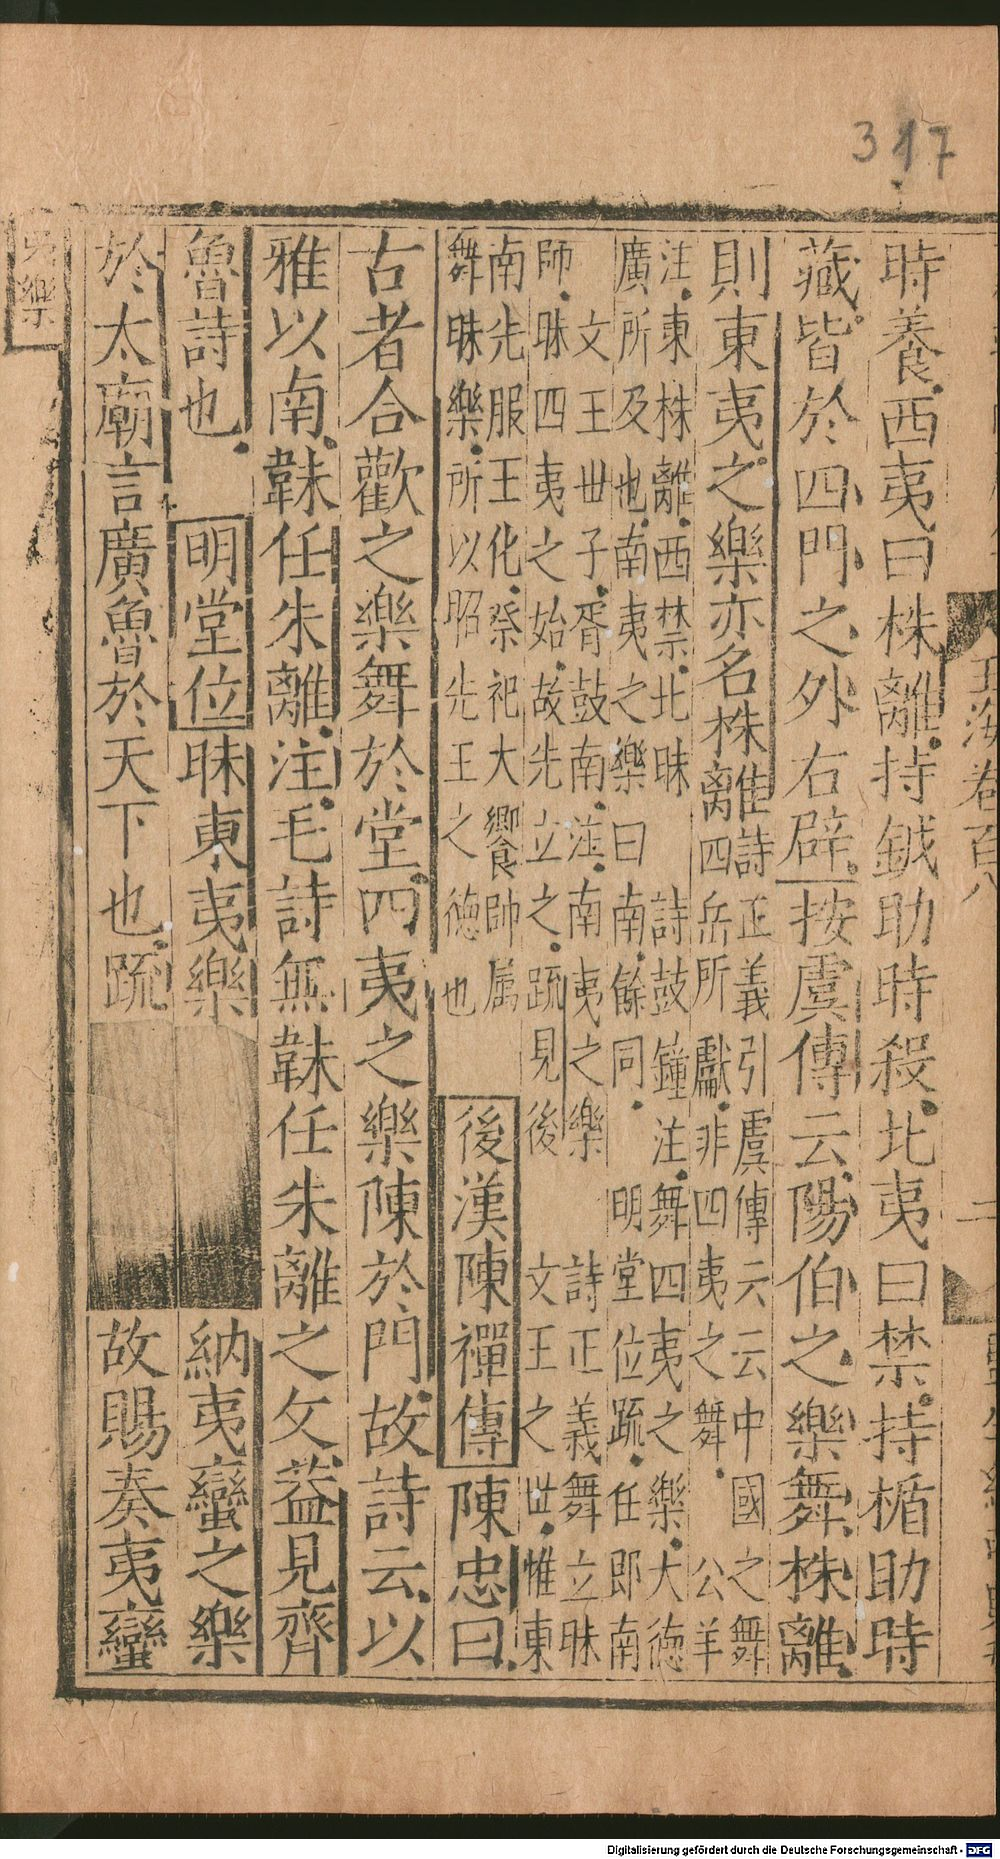 317
玉海卷百八
二
時養西夷曰株離持鉞助時殺北夷曰禁持楯助時
藏皆於四門之外右辟按虞傳云陽伯之樂舞株離
則東夷之樂亦名株離
詩正義引虞傳云云中國之舞
四岳所獻非四夷之舞 公羊
注東株離西禁北昧 詩鼓鐘注舞四夷之樂大德
廣所及也南夷之樂曰南餘同 明堂位疏任即南
文王世子胥鼓南注南夷之樂 詩正義舞立昧
師昧四夷之始故先立之疏見後 文王之世惟東
南先服王化祭祀大饗帥属
舞昧樂所以昭先王之德也
後漢陳禪傳陳忠曰
古者合歡之樂舞於堂四夷之樂陳於門故詩云以
雅以南韎任朱離注毛詩無韎任朱離之文葢見齊
魯詩也 明堂位昧東夷樂 納夷蠻之樂
於太廟言廣魯於天下也疏 故賜奏夷蠻
夷樂
Digitalisierung gefördert durch die Deutsche Forschungsgemeinschaft - DFG